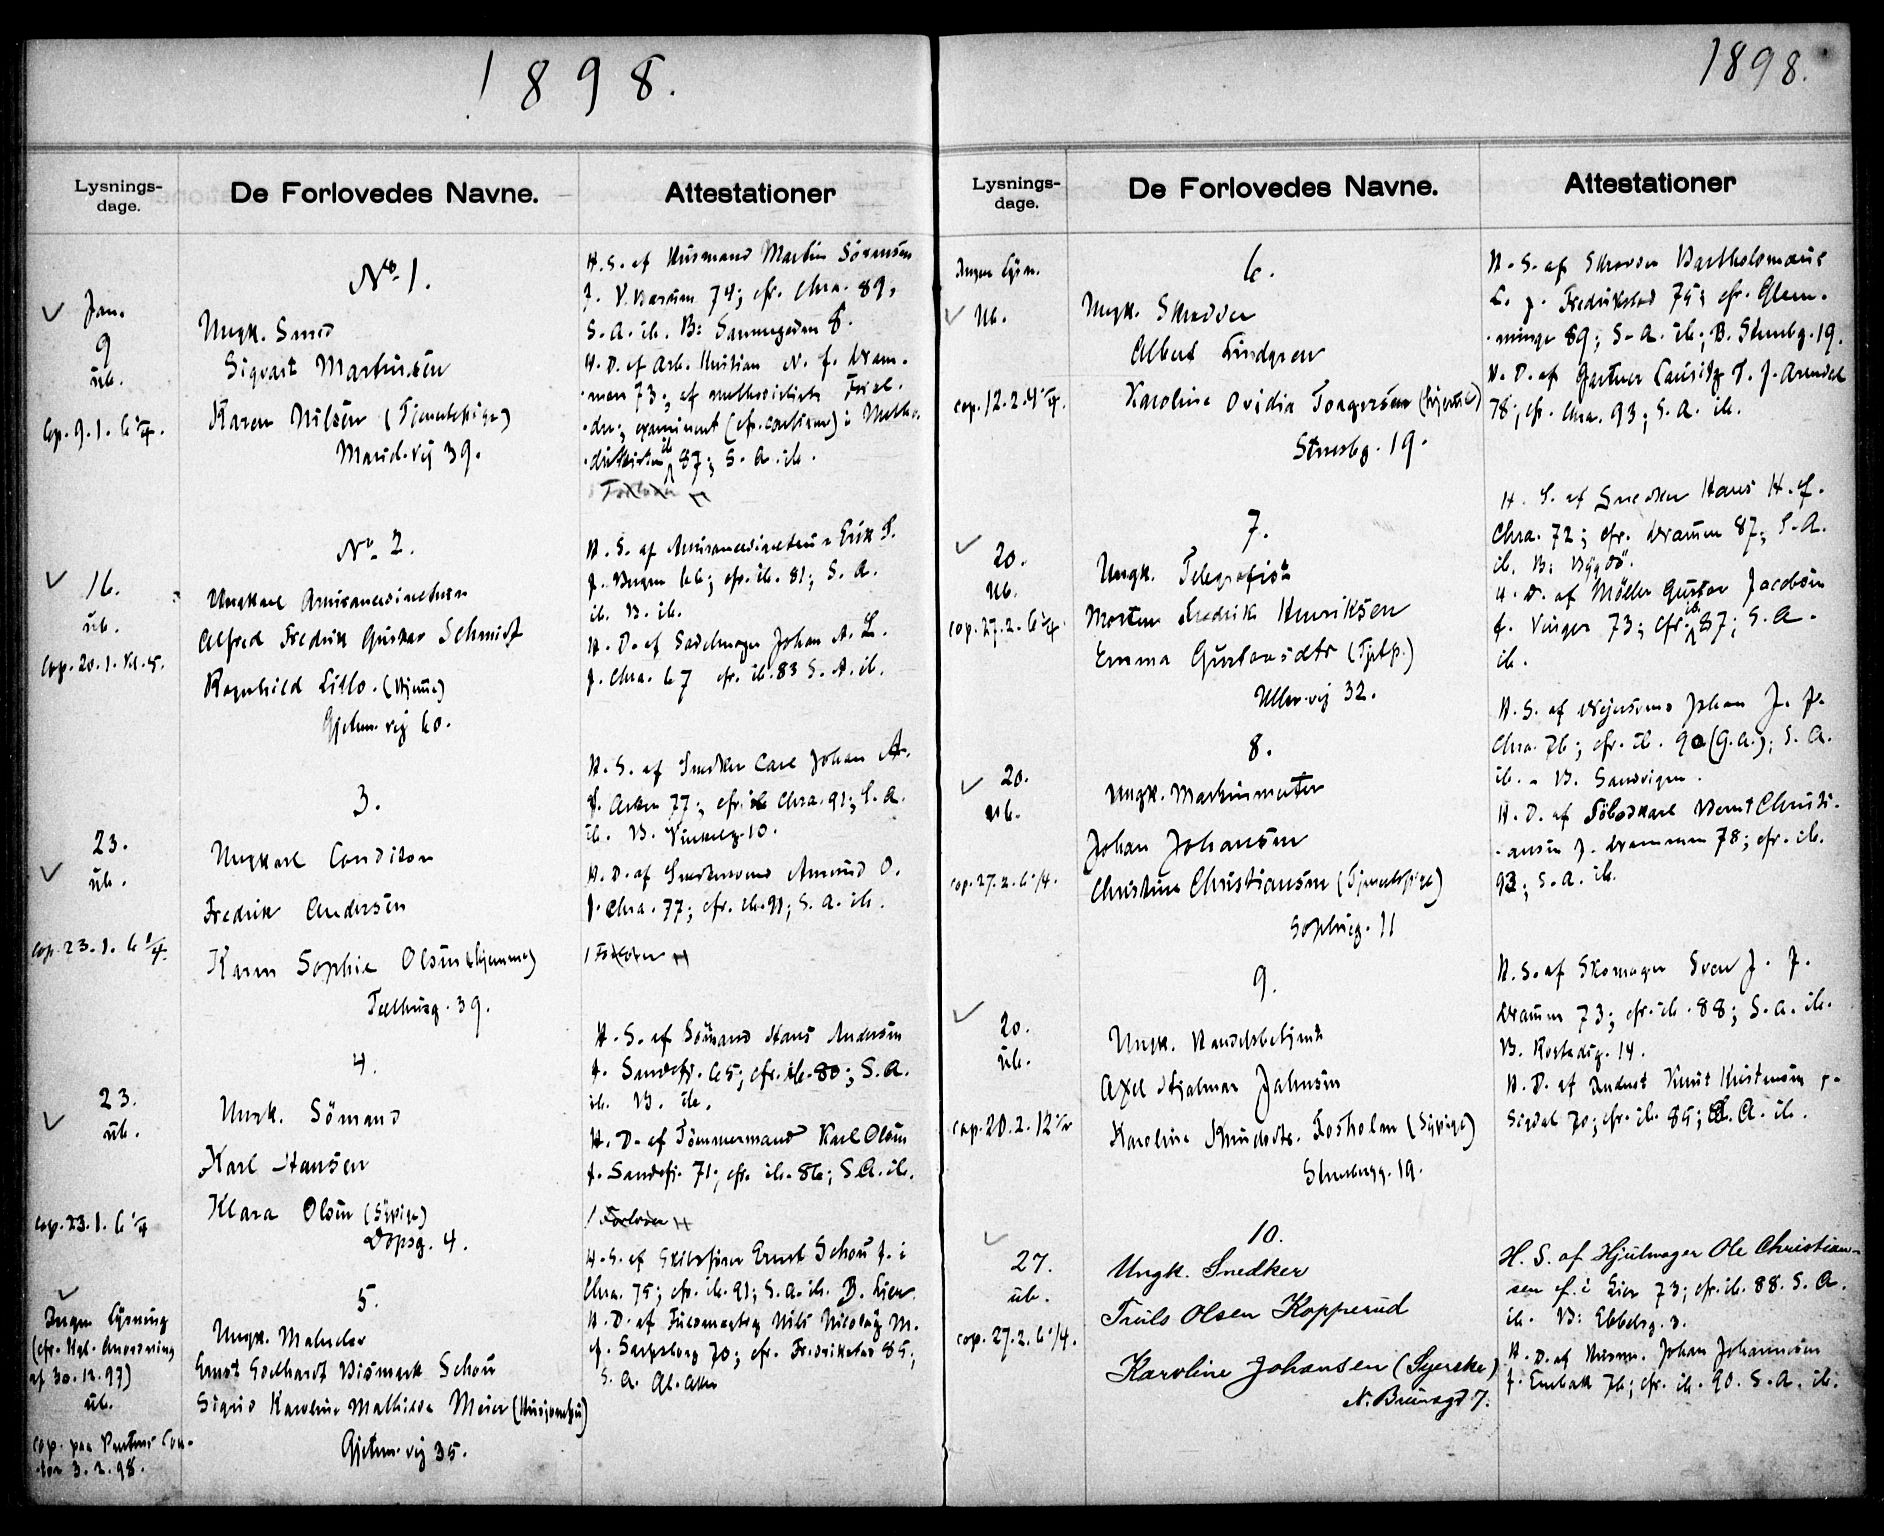 1898.
Lysnings-
dage.
De Forlovedes Navne.
Attestationer
Jan.
9
üb.
Cop. 9.1. 6 1/4.
No. 1.
Ungk. Smed
Sigvart Martinsen
Karen Nilsen (Tjenestepige)
Marid.vej 39.
H. S. af Husmand Martin Sörensen
f. V. Bærum 74; cfr. Chra. 89,
S. A. ib. B: Sannergaden 8.
H. D. af Arb. Kristian N. f. Dram-
men 73; af methodistisk
87; S. A. ib.
16.
üb.
Cop. 20.1. Kl. 5.
No. 2.
Ungkarl
Alfred Fredrik Gustav Schmidt
Ragnhild Lillo. (Hjemme)
Gjetem.vej 60.
H. S. af Erik S.
f. Bergen 66; cfr. ib. 81; S. A.
ib. B. ib.
H. D. af Sadelmager Johan A. L.
f. Chra. 67 cfr. ib. 83 S. A. ib.
23.
üb.
Cop. 23.1. 6 1/4.
3.
Ungkarl Conditor
Fredrik Andersen
Karen Sophie Olsen (hjemme)
Telthusg. 39.
H. S. af Snedker Carl Johan A.
f. Asker 77; cfr. Chra. 91; S. A.
ib. B. Vinkelg. 10.
H. D. af Snedkersvend Amund O.
f. Chra. 77; cfr. ib. 91; S. A. ib.
1 Forlover
23.
üb.
Cop. 23.1. 6 1/4
4.
Ungk. Sömand
Karl Hansen
Klara Olsen (Sypige)
Dopsg. 4.
H. S. af Sömand Hans Andersen
f. Sandefj. 65; cfr. ib. 80; S. A.
ib. B. ib.
H. D. af Tömmermand Karl Olsen
f. Sandefj. 71; cfr. ib. 86; S. A. ib.
1 Forlover
Ingen Lysning
(cfr. Kgl. Anordning
af 30.12.97)
üb.
Cop. paa Præstens Con-
tor 3.2.98.
5.
Ungk. Matador
Ernst Gotthardt Bismark Schou
Sigrid Karoline Mathilde Meier (Husjomfru)
Gjetem.vej 35.
H. S. af Skibsförer Ernst Schou f. i
Chra. 75; cfr. ib. 91; S. A. ib. B. Lier
H. D. af Nils Nicolay M.
f. Sarpsborg 70; cfr. Fredrikstad 85;
S. A. Gl. Aker
1898.
Lysnings-
dage.
De Forlovedes Navne.
Attestationer
Ingen Lysn.
üb.
cop. 12.2. 4 1/4.
6.
Ungk. Skrædder
Albert Lindgren
Karoline Ovidia Torgersen (hjemme)
Steensbg. 19.
H. S. af Skrædder Bartholomæus
L. f. Fredrikstad 75; cfr. Glem-
minge 89; S. A. ib.; B. Steensbg. 19.
H. D. af Gartner T. f. Arendal
78; cfr. Chra. 93; S. A. ib.
20.
üb.
cop. 27.2. 6 1/4.
7.
Ungk. Telegrafist
Morten Fredrik Henriksen
Emma Gustavsdtr (Tjstp.)
Ullev.vej 32.
H. S. af Snedker Hans H. f.
Chra. 72; cfr. Dramen 87; S. A.
ib. B: Bygdö.
H. D. af Möller Gustav Jacobsen
f. Vinger 73; cfr. ib. 87; S. A.
ib.
20.
üb.
cop. 27.2. 6 1/4.
8.
Ungk. Maskinmester
Johan Johansen
Christine Christiansen (Tjenestepige)
Sophieg. 11
H. S. af Dreiersvend Johan J. f.
Chra. 76; cfr. ib. 90 (G.a.); S. A.
ib. - B. Sandvigen.
H. D. af Toldkarl Bernt Christi-
ansen f. Drammen 78; cfr. ib.
93; S. A. ib.
20.
üb.
cop. 20.2. 12 1/2
9.
Ungk. Handelsbetjent
Axel Hjalmar Johnsen
Karoline Knudsdtr. Fosholm (Sypige)
Steensbergg. 19.
H. S. af Skomager Sven J. f.
Dramen 73; cfr. ib. 88; S. A. ib.
B. Rostedsg. 14.
H. D. af Inderst Knut Kristensen f.
Sigdal 70; cfr. ib. 85; S. A. ib.
27.
üb.
cop. 27.2. 6 1/4.
10.
Ungk. Snedker
Truls Olsen Kopperud
Karoline Johansen (Syerske)
N. Bruunsgd 7.
H. S. af Hjulmager Ole Christian-
sen f. i Lier 73; cfr. ib. 88. S. A.
ib. B: Ebbelsg. 3.
H. D. af Husm. Johan Johannesen
f. Enebakk 76; cfr. ib. 90. S. A. ib.